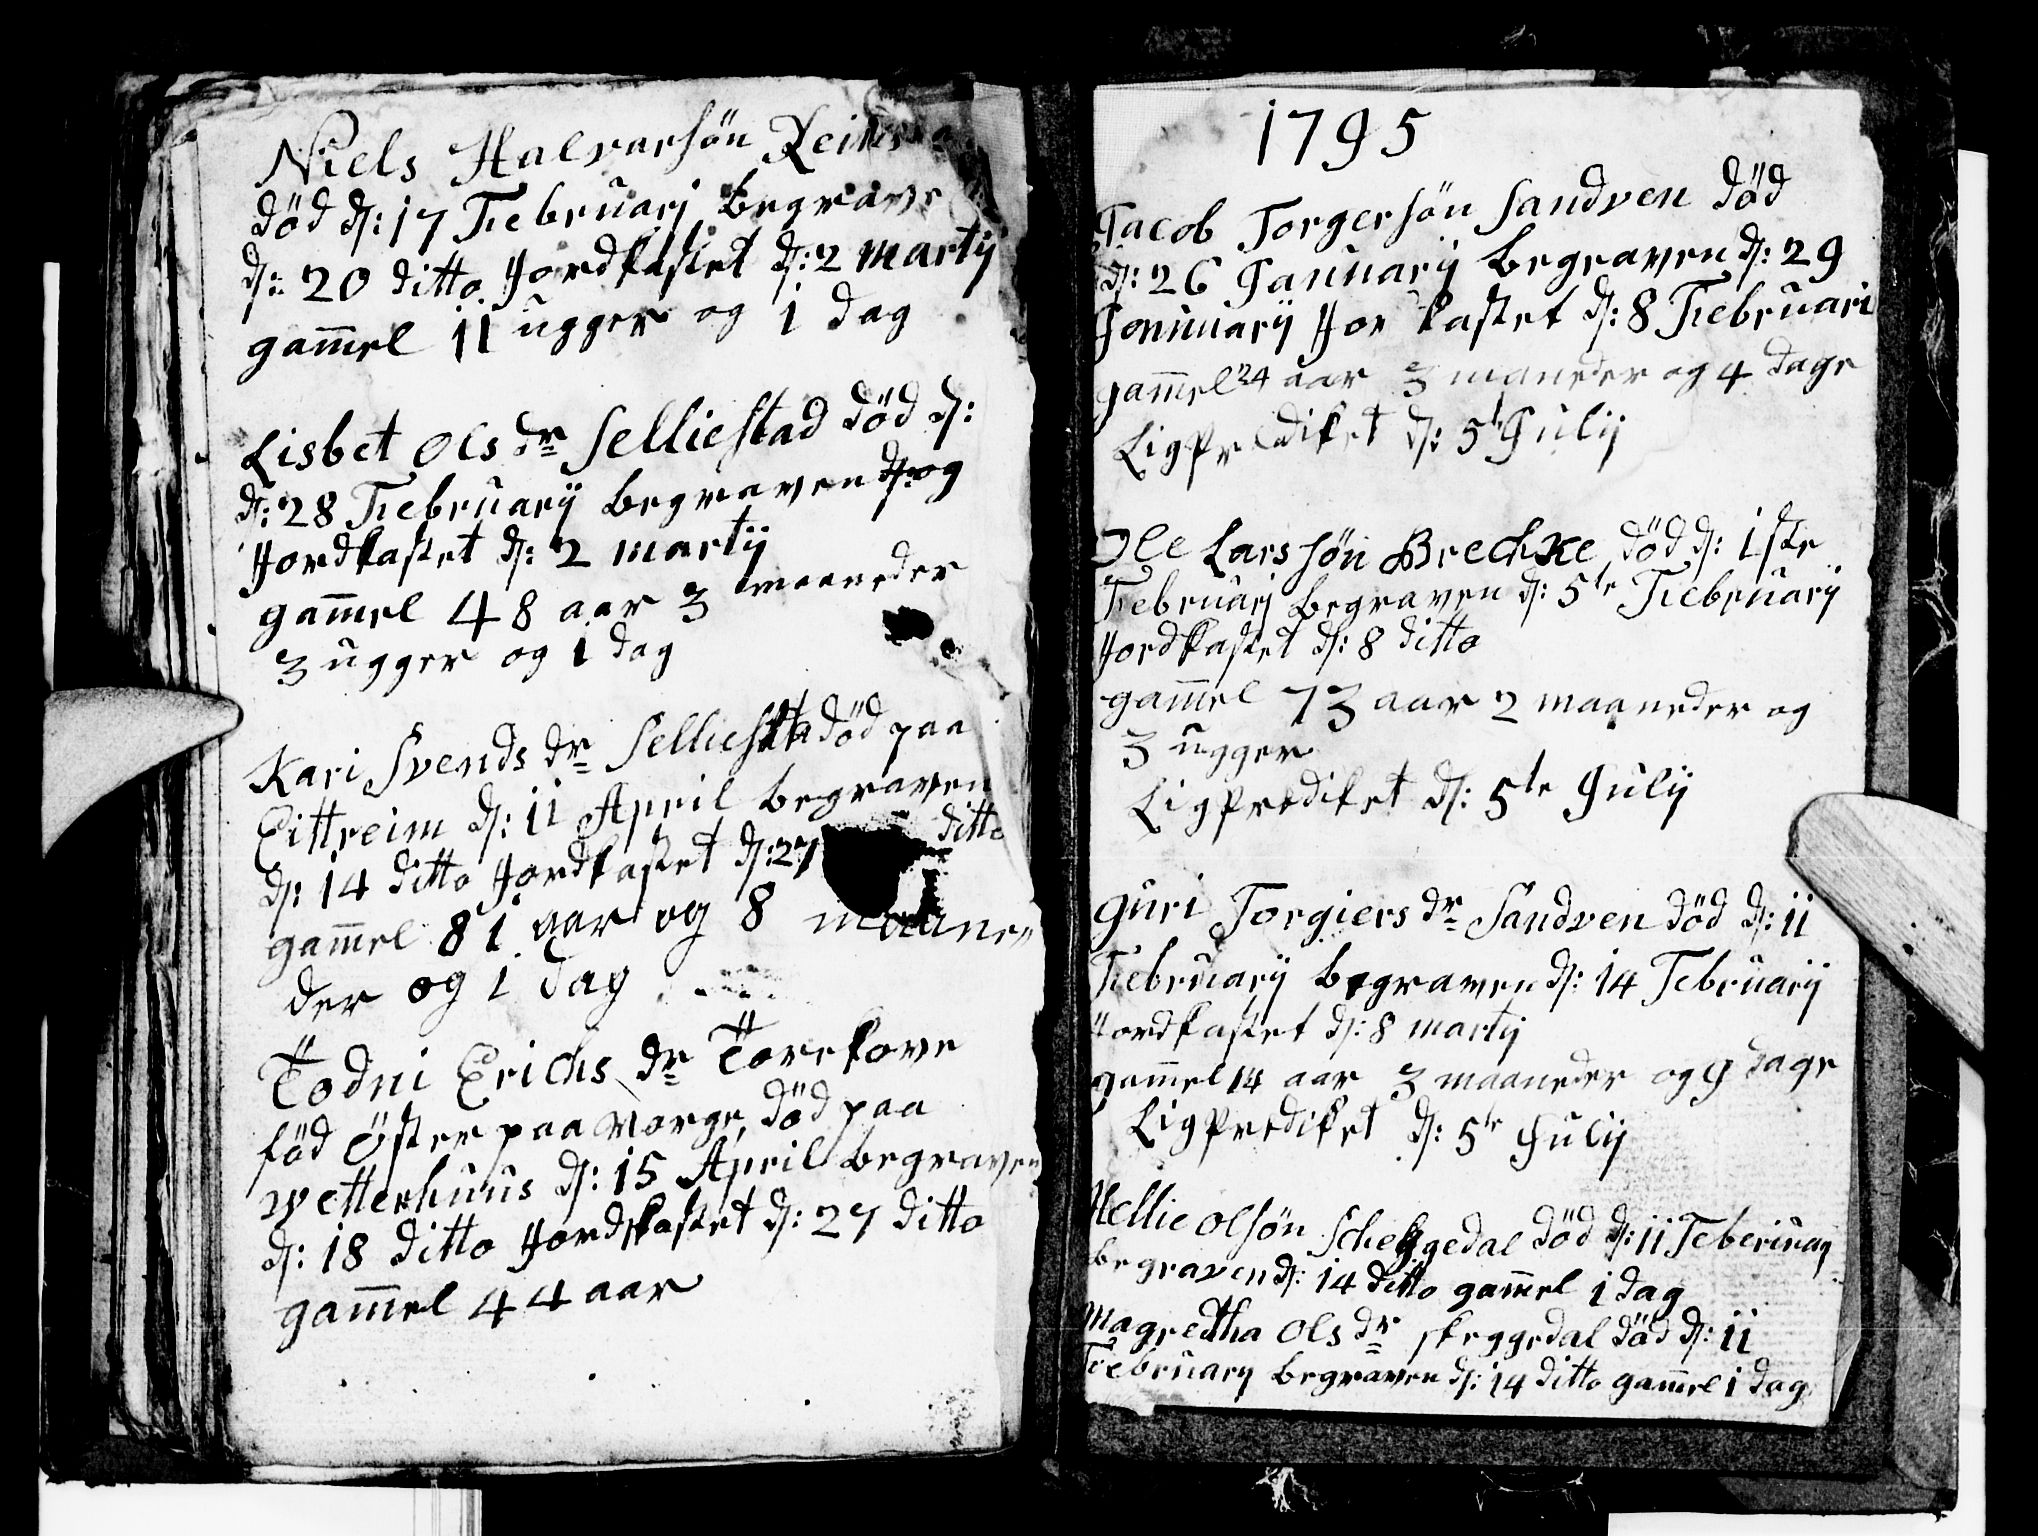 Niels Halvarsön
död d: 17 Februarj begrave
d: 20 ditto Jordkastet d: 2 martij
gam̄el 11 ugger og 1 dag
Lisbet Ols dr Selliestad död d:
d: 28 Februarij begraven d: og
Jordkastet d: 2 martij
gam̄el 48 aar 3 maaneder
3 ugger og 1 dag
Kari Svends dr Selliesta död paa
Eittreim d: 11 April begraven
d: 14 ditto Jordkastet d: 27 ditto
gam̄el 81 aar og 8 maane
der og 1 dag
Todni Erichs dr Torekove
föd Öster paa Vorge, död paa
Wetterhuus d: 15 April begraven
d: 18 ditto Jordkastet d: 27 ditto
gam̄el 44 aar
1795
Jacob Torgersön Sandven död
d: 26 Januarij begraven d: 29
Januuarij Jor kastet d: 8 Februari
gam̄el 24 aar 3 maneder og 4 dage
Ligprediket d: 5t Julij
Ole Larssön Brechke död d: 1ste
Februarj begraven d: 5te Februarij
Jordkastet d: 8 ditto
gam̄el 73 aar 2 maaneder og
3 ugger
Ligprediket d: 5te Julij
Guri Torgiers dr Sandven död d: 11
Februarij begraven d: 14 Februarij
Jordkastet d: 8 martij
gam̄el 14 aar 3 maaneder og 9 dage
Ligprediket d: 5te Julij
Hellie Olsön Scheggedal död d: 11 Feberiuarj
begraven d: 14 ditto gam̄el 1 dag
Magretha Ols dr skeggedal död d: 11
Februarij begraven d: 14 ditto gam̄el 1 dag